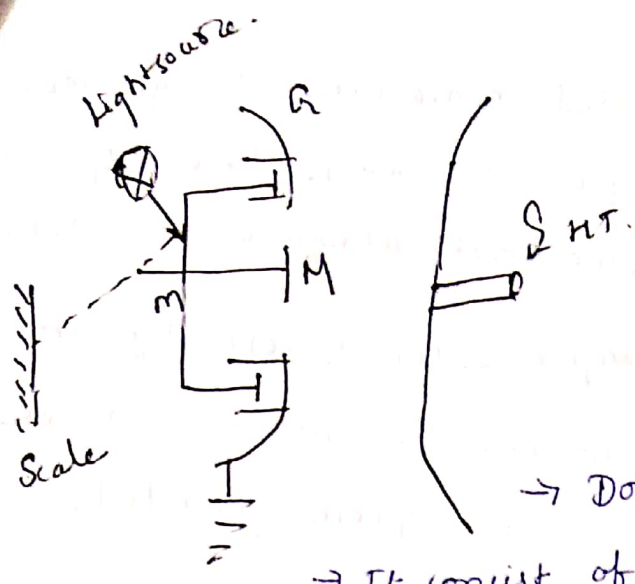 Light source.
G
HT.
M
m
Scale
→ Do
→ It consist of